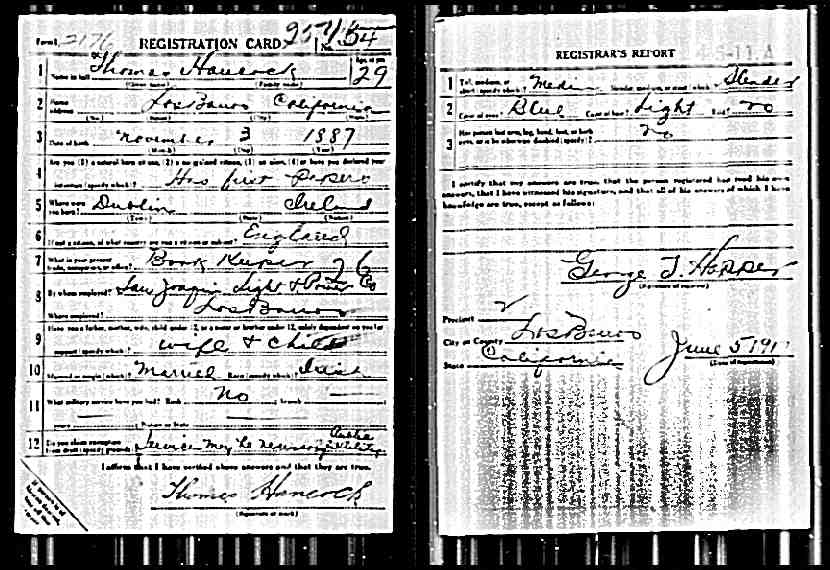 Form 1 2176 REGISTRATION CARD No. 54
1 Thomas Hancock Age, in yrs. 29
Name in full (Given name) (Family name)
2 Home address Los Banos California
(No.) (Street) (City) (State)
3 Date of birth November 3 1887
(Month) (Day) (Year)
4 Are you (1) a natural born citizen, (2) a naturalized citizen, (3) an alien, (4) or have you declared your
intention (specify which)? Has first Papers
5 Where were you born? Dublin Ireland
(Town) (State) (Nation)
6 If not a citizen, of what country are you a citizen or subject? England
7 What is your present trade, occupation, or office? Book Keeper 26
8 By whom employed? San Joaquin Light & Power Co
Where employed? Los Banos
9 Have you a father, mother, wife, child under 12, or a sister or brother under 12, solely dependent on you for
support (specify which)? wife & child
10 Married or single (which)? Married Race (specify which)? Irish
11 What military service have you had? Rank No branch
years Nation or State
12 Do you claim exemption from draft (specify grounds)? Service may be necessary Public Utility
I affirm that I have verified above answers and that they are true.
Thomas Hancock
(Signature or mark)
REGISTRAR'S REPORT
1 Tall, medium, or short (specify which)? Medium Slender, medium, or stout (which)? Slender
2 Color of eyes? Blue Color of hair? Light Bald? no
3 Has person lost arm, leg, hand, foot, or both eyes, or is he otherwise disabled (specify)? no
I certify that my answers are true, that the person registered has read his own
answers, that I have witnessed his signature, and that all of his answers of which I have
knowledge are true, except as follows:
George T. Hopper
(Signature of registrar)
Precinct 2
City or County Los Banos
State California June 5 191
(Date of registration)